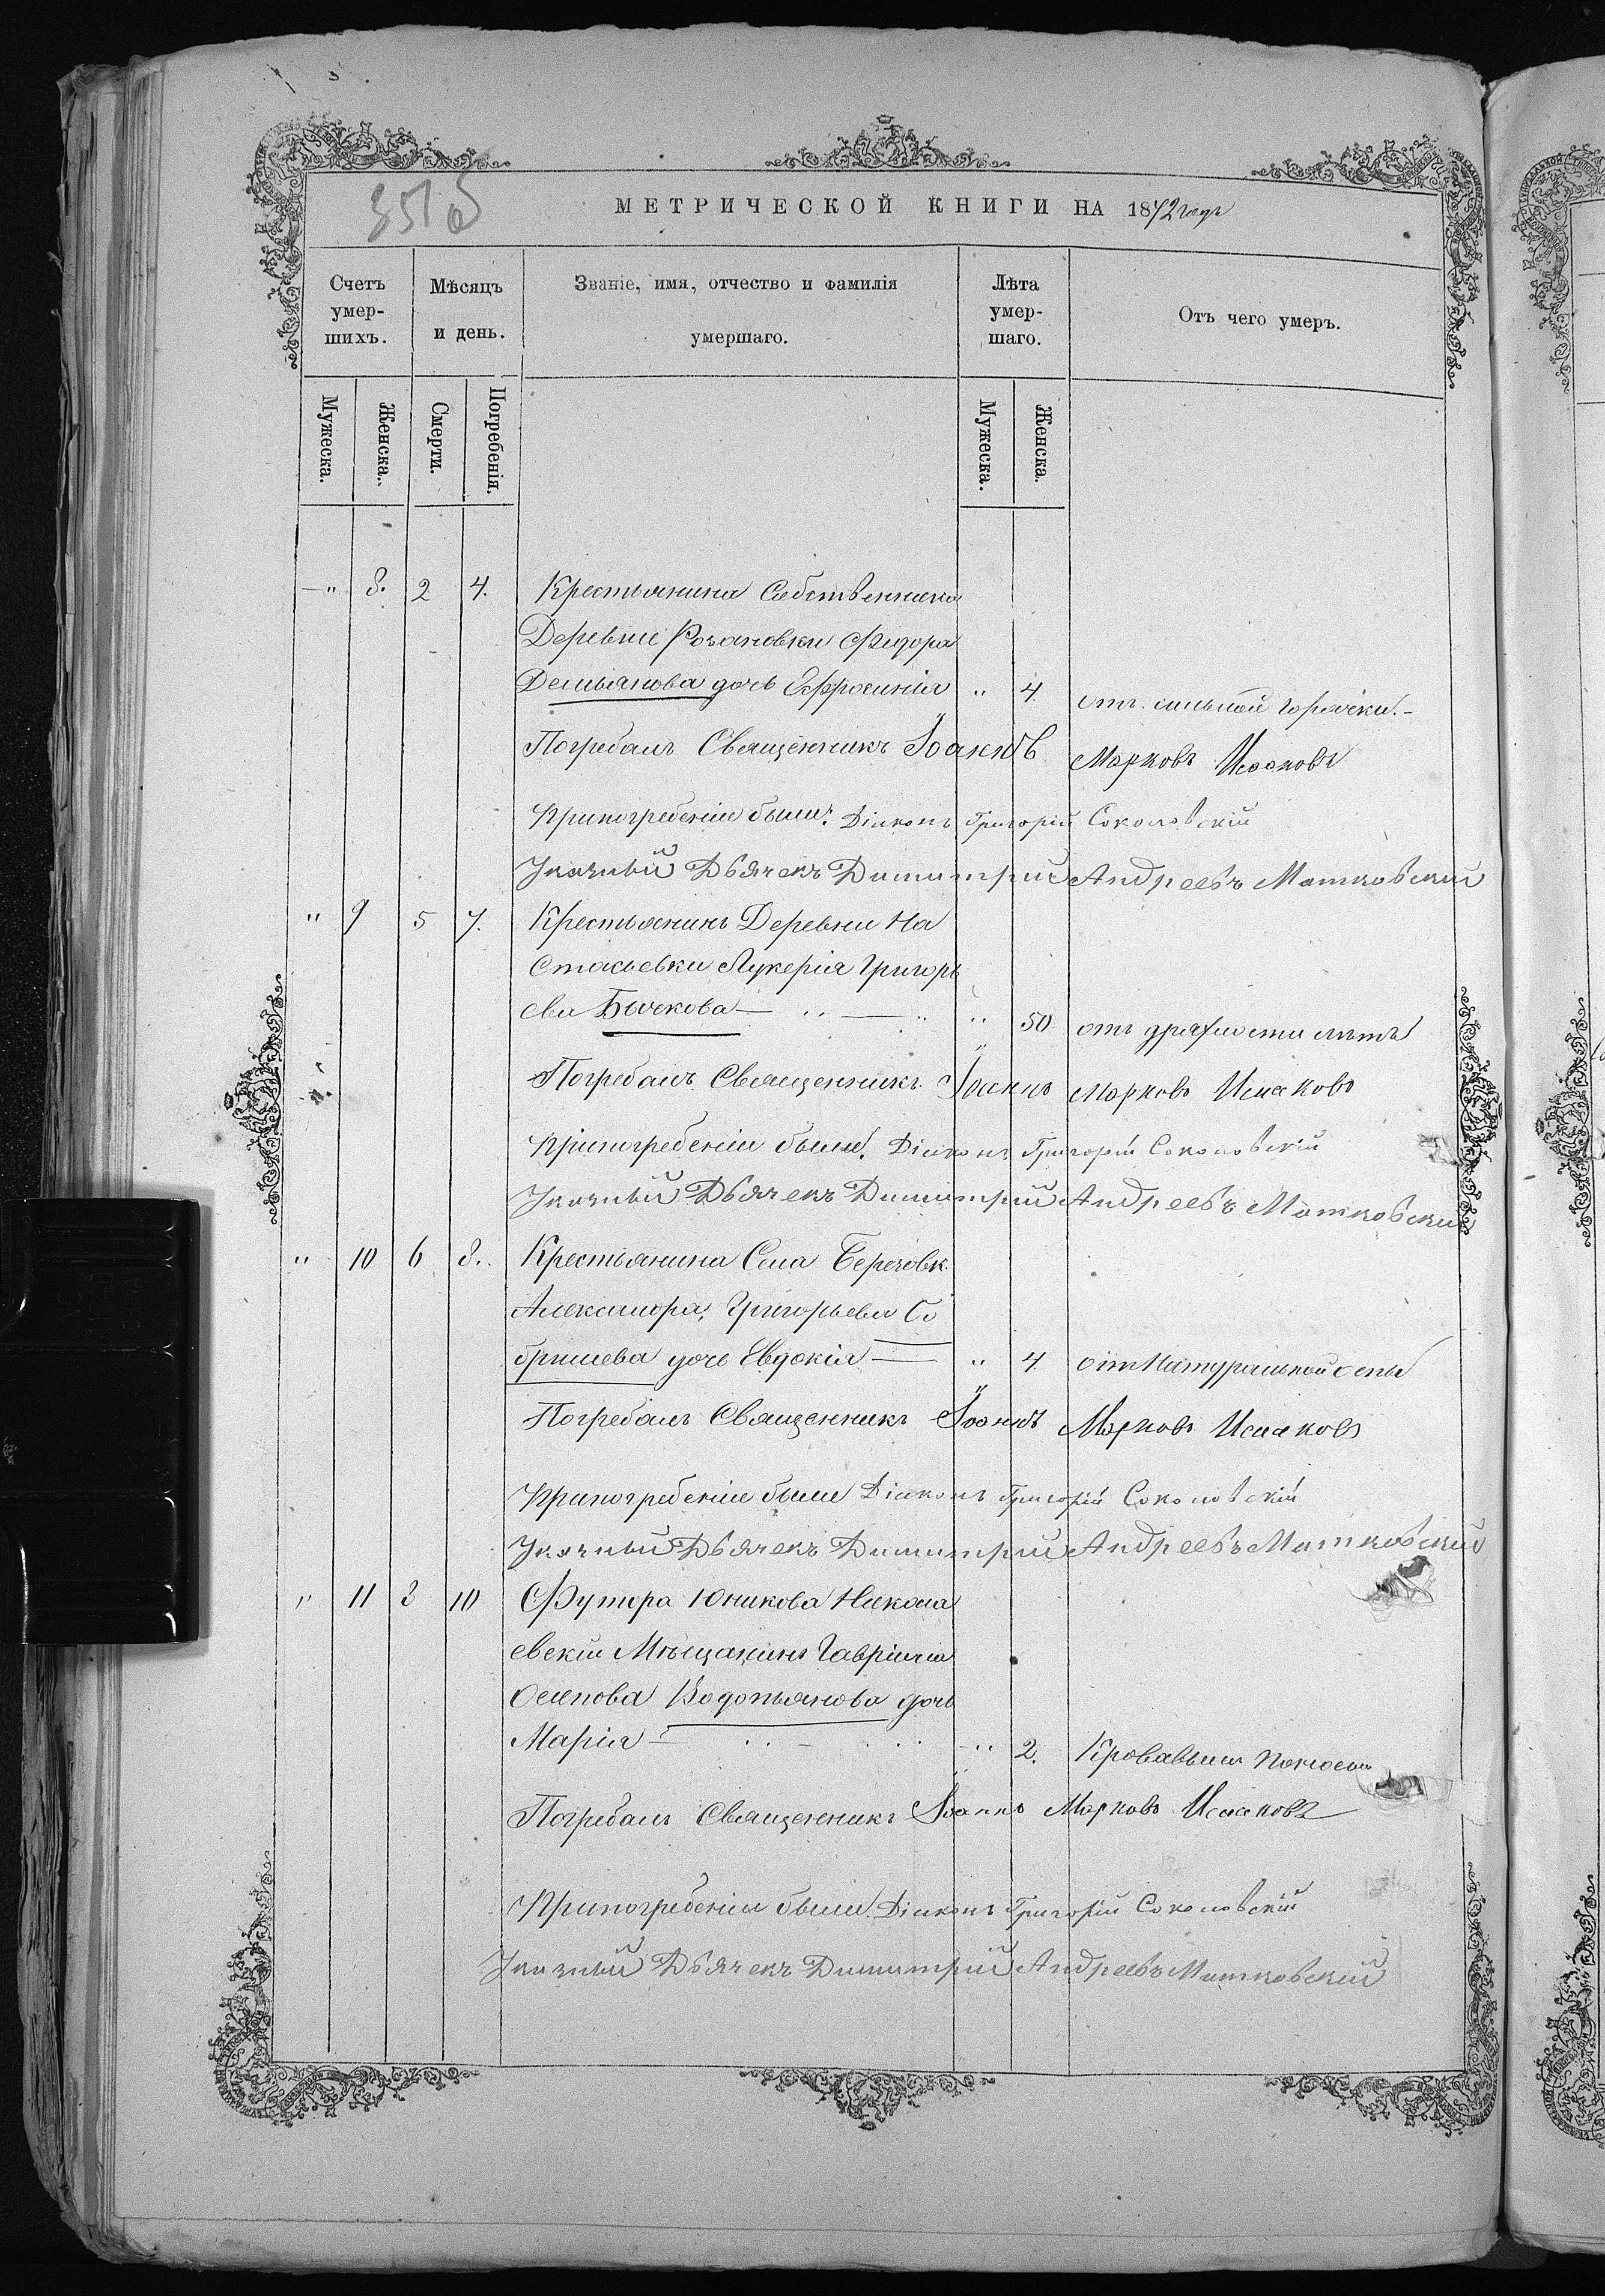 МЕТРИЧЕСКОЙ КНИГИ НА 1872 годъ
Счетъ умер-шихъ.
Мѣсяцъ и день.
Званіе, имя, отчество и фамилія умершаго.
Лѣта умер-шаго.
Отъ чего умеръ.
Мужеска.
Женска.
Смерти.
Погребенія.
Мужеска.
Женска.
— " 8. 2 4. Крестьянина Собственника
Деревни Розановки Федора
Демьянова дочь Ефросинія " 4 отъ сильной горячки.-
Погребалъ Священникъ Іоаннъ Марковъ Исааковъ
Припогребеніи были: Діаконъ Григорій Соколовскій
Указный Дьячекъ Димитрій Андреевъ Матковскій
" 9 5 7. Крестьянинъ Деревни На
стасьевки Лукерія Григорь
ева Бычкова — " 50 отъ драхлости лѣтъ
Погребалъ Священникъ Іоаннъ Марковъ Исааковъ
Припогребеніи были: Діаконъ Григорій Соколовскій
Указный Дьячекъ Димитрій Андреевъ Матковскій
" 10 6 8. Крестьянина Села Березовк.
Александра Григорьева
дочь Евдокія — " 4 отъ Натуральной оспы
Погребалъ Священникъ Іоаннъ Марковъ Исааковъ
Припогребеніи были Діаконъ Григорій Соколовскій
Указный Дьячекъ Димитрій Андреевъ Матковскій
" 11 8 10 С Футора Юникова Никола
евскій Мѣщанинъ Гавріила
Осипова Водопьянова дочь
Марія — " 2. Кровавымъ поносомъ
Погребалъ Священникъ Іоаннъ Марковъ Исааковъ
Припогребеніи были Діаконъ Григорій Соколовскій
Указный Дьячекъ Димитрій Андреевъ Матковскій